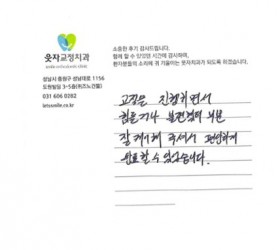 웃자교정치과
smile orthodontic clinic
성남시 중원구 성남대로 1156
도원빌딩 3~5층(위즈노건물)
031 606 0282
letssmile.co.kr
소중한 후기 감사드립니다.
함께 할 수 있었던 시간에 감사하며,
환자분들의 소리에 귀 기울이는 웃자치과가 되도록 하겠습니다.
교정을 진행하면서
힘들거나 불편했던 부분
잘 케어해 주셔서 편안하게
완료할 수 있었습니다.